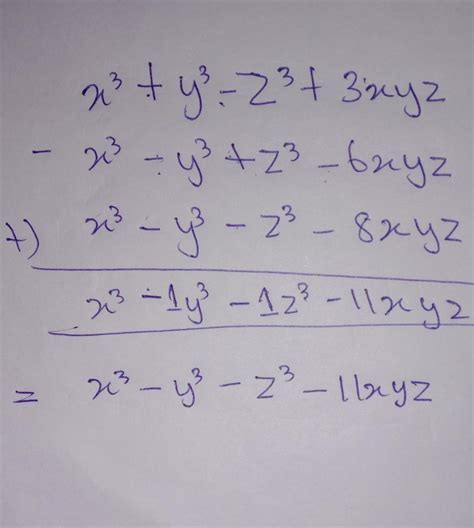 x³ + y³ - z³ + 3xyz
- x³ - y³ + z³ - 6xyz
+) x³ - y³ - z³ - 8xyz
x³ - 1y³ - 1z³ - 11xyz
= x³ - y³ - z³ - 11xyz